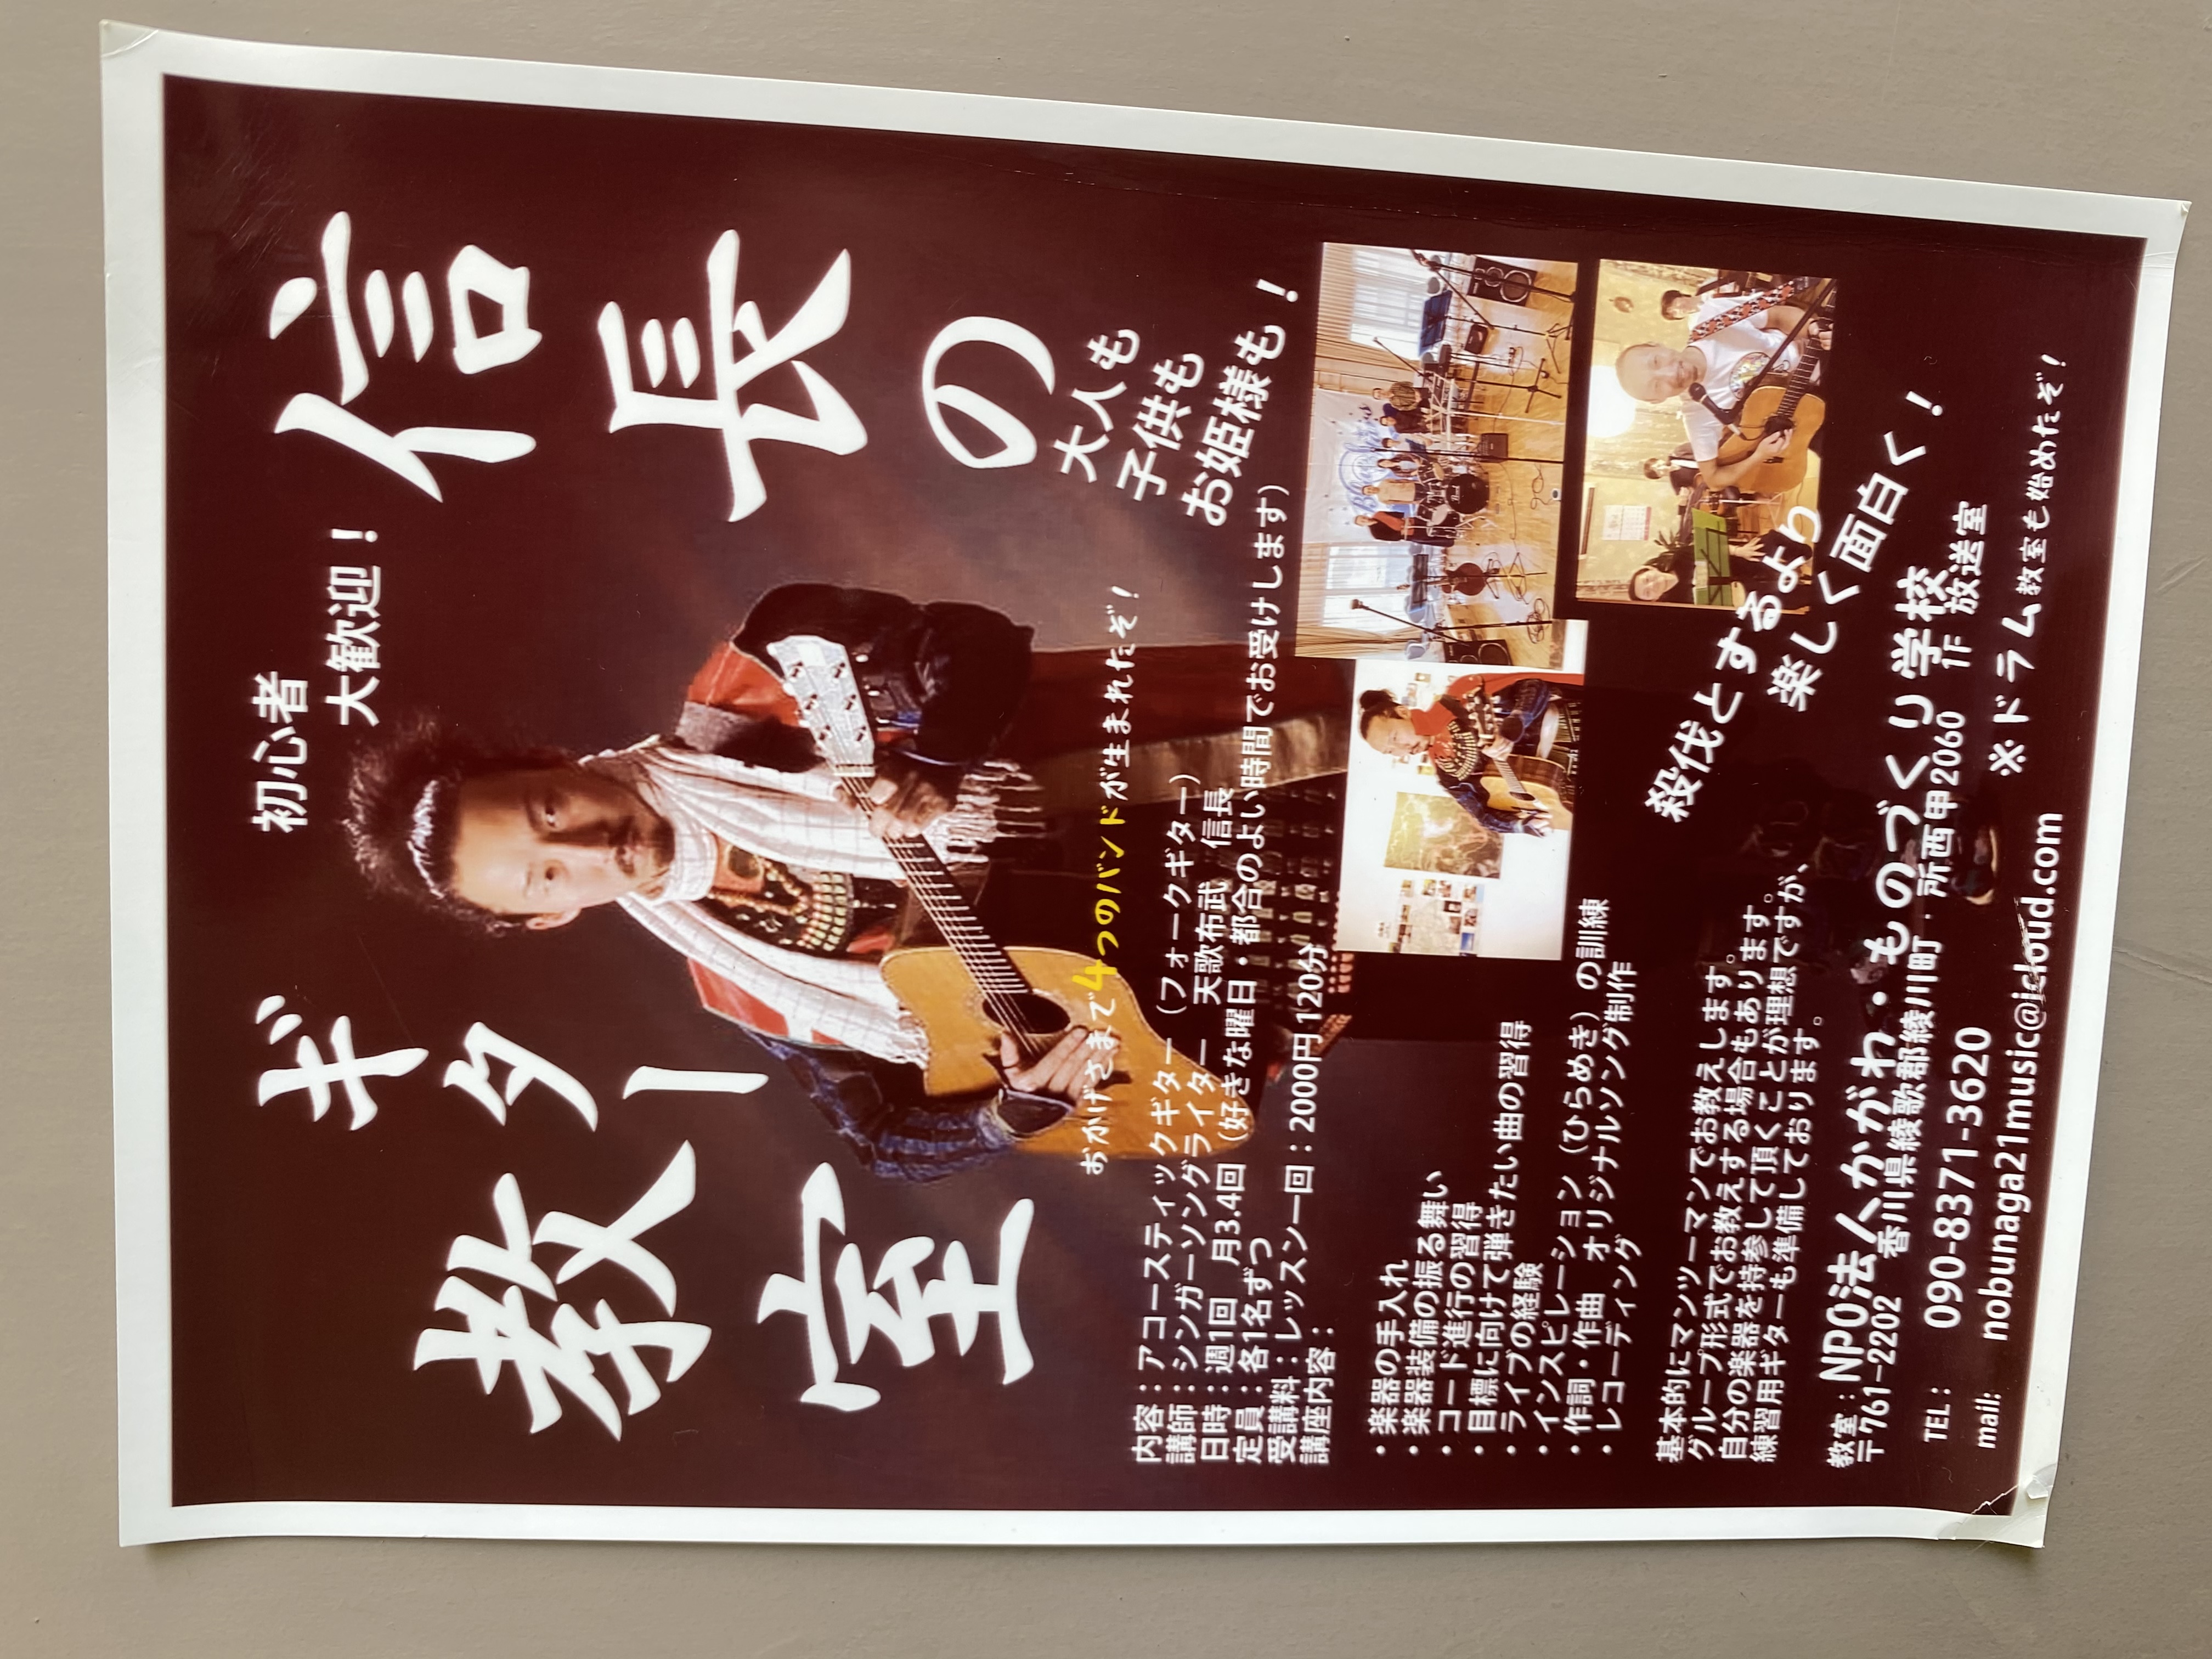 信長の
ギター
教室
初心者
大歓迎！
大人も
子供も
お姫様も！
おかげさまで4つのバンドが生まれたぞ！
内容：アコースティックギター（フォークギター）
講師：シンガーソングライター 天歌布武 信長
日時：週1回 月3.4回（好きな曜日・都合のよい時間でお受けします）
定員：各1名ずつ
受講料：レッスン一回：2000円 120分
講座内容：
・楽器の手入れ
・楽器装備の振る舞い
・コード進行の習得
・目標に向けて弾きたい曲の習得
・ライブの経験
・インスピレーション（ひらめき）の訓練
・作詞・作曲 オリジナルソング制作
・レコーディング
殺伐とするより
楽しく面白く！
基本的にマンツーマンでお教えします。
グループ形式でお教えする場合もあります。
自分の楽器を持参して頂くことが理想ですが、
練習用ギターも準備しております。
教室：NPO法人かがわ・ものづくり学校
〒761-2202 香川県綾歌郡綾川町・所西甲2060 作 放送室
TEL： 090-8371-3620
※ドラム教室も始めたぞ！
mail: nobunaga21music@icloud.com